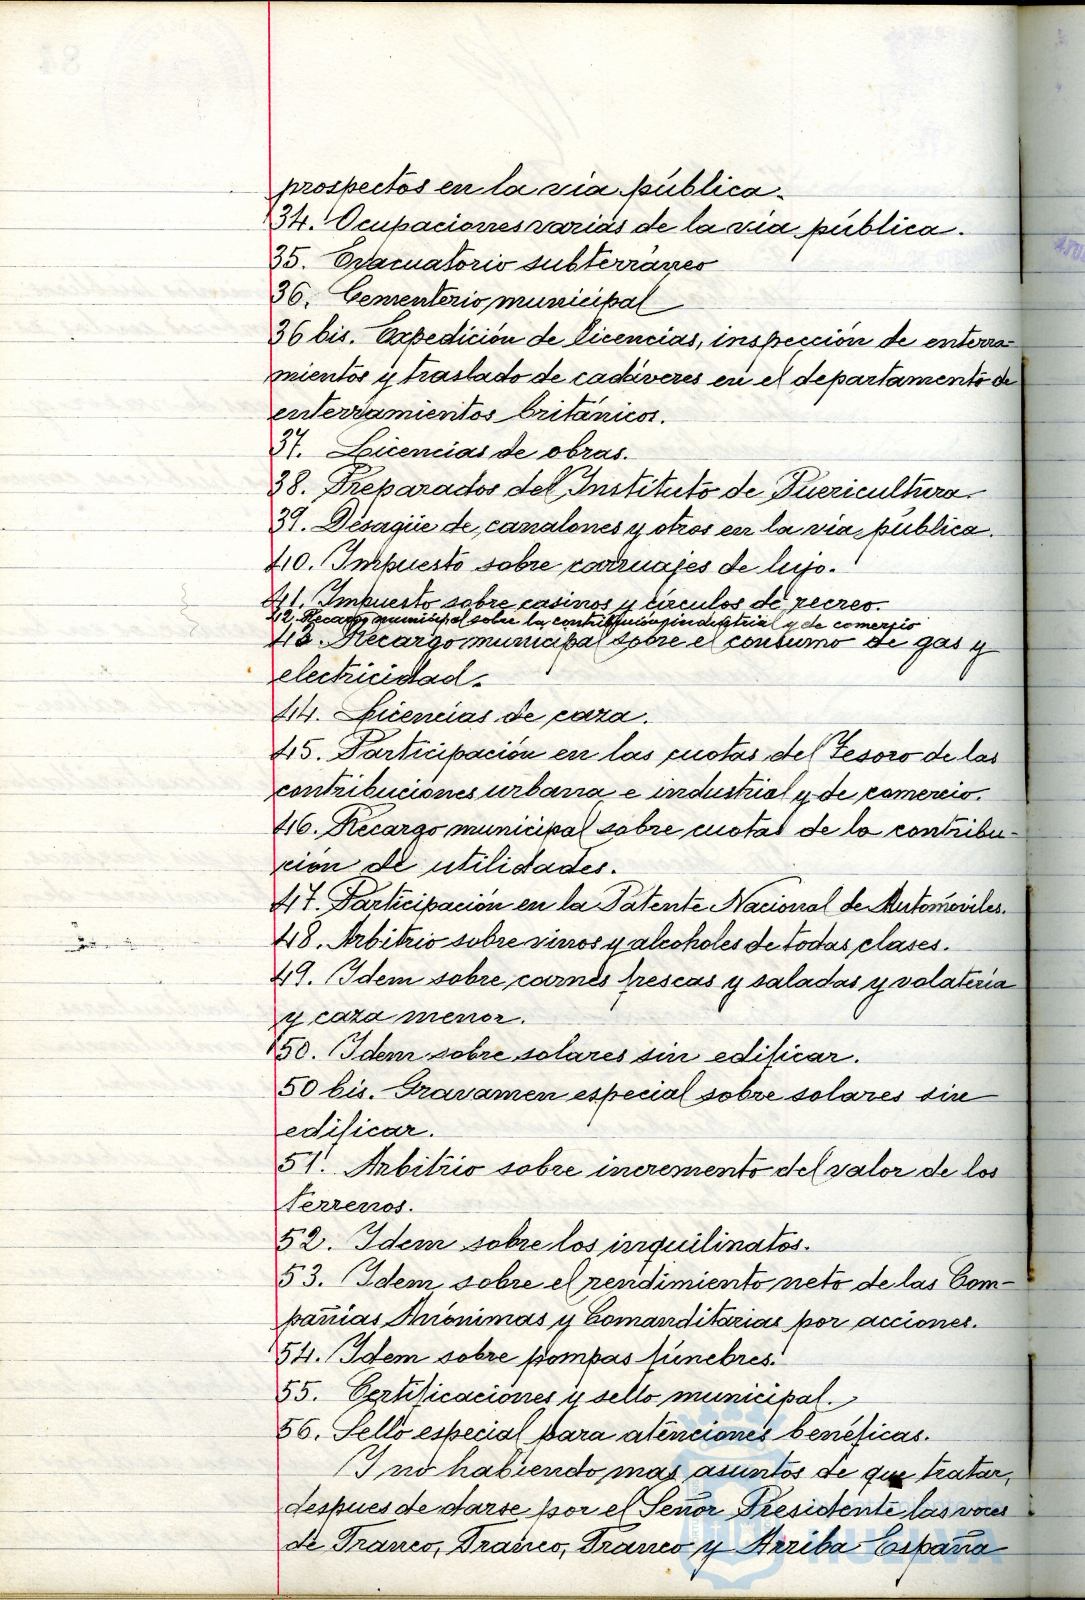 prospectos en la via pública.
34. Ocupaciones varias de la via pública.
35. Evacuatorio subterráneo
36. Cementerio municipal
36 bis. Expedición de licencias, inspección de enterra-
mientos y traslado de cadáveres en el departamento de
enterramientos británicos.
37. Licencias de obras.
38. Preparados del Instituto de Puericultura.
39. Desagüe de canalones y otros en la via pública.
40. Impuesto sobre carruajes de lujo.
41. Impuesto sobre casinos y círculos de recreo.
42. Recargo municipal sobre la contribución industrial y de comercio
43. Recargo municipal sobre el consumo de gas y
electricidad.
44. Licencias de caza.
45. Participación en las cuotas del Tesoro de las
contribuciones urbana e industrial y de comercio.
46. Recargo municipal sobre cuotas de la contribu-
ción de utilidades.
47. Participación en la Patente Nacional de Automóviles.
48. Arbitrio sobre vinos y alcoholes de todas clases.
49. Idem sobre carnes frescas y saladas y volateria
y caza menor.
50. Idem sobre solares sin edificar.
50 bis. Gravamen especial sobre solares sin
edificar.
51. Arbitrio sobre incremento del valor de los
terrenos.
52. Idem sobre los inquilinatos.
53. Idem sobre el rendimiento neto de las Com-
pañias Anónimas y Comanditarias por acciones.
54. Idem sobre pompas fúnebres.
55. Certificaciones y sello municipal.
56. Sello especial para atenciones benéficas.
Y no habiendo mas asuntos de que tratar,
despues de darse por el Señor Presidente las voces
de Franco, Franco, Franco y Arriba España